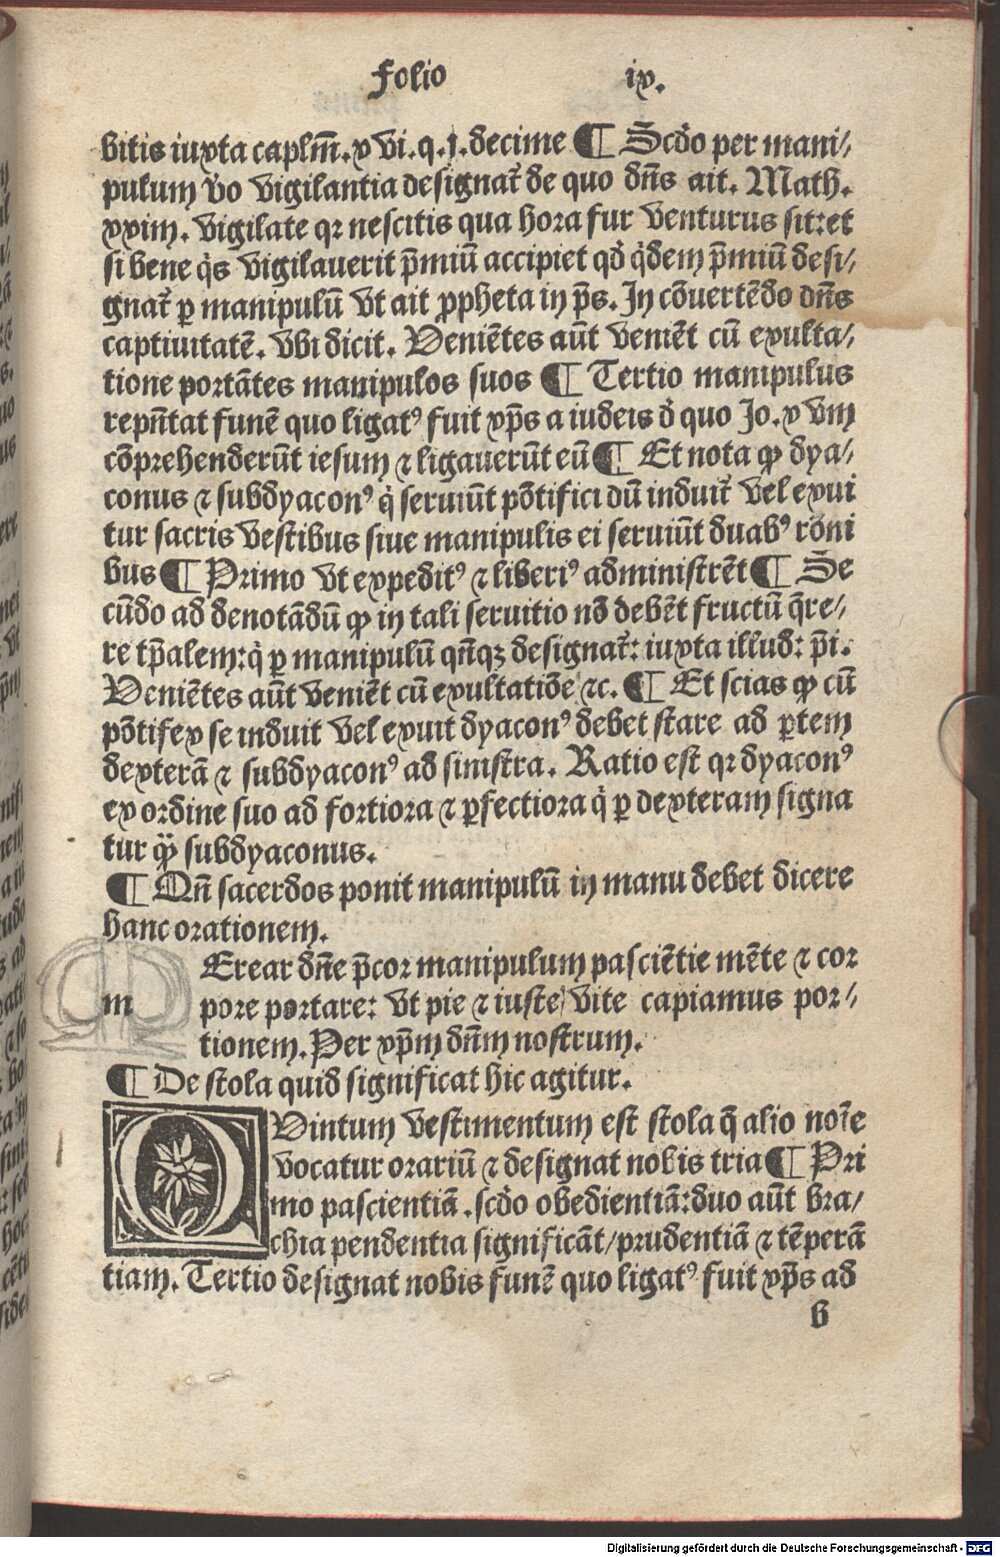 Folio ix.
bitis iuxta caplm̄. x vi. q. j. decime ¶ Scd̄o per mani⸗
pulum v̄o vigilantia designat᷑ de quo dn̄s ait. Math.
xxiiij. vigilate qr nescitis qua hora fur venturus sit: et
si bene q̄s vigilauerit p̄miū accipiet qd̄ q̄dem p̄miū desi⸗
gnat᷑ ꝑ manipulū vt ait ꝓpheta in p̄s. In cōuertēdo dn̄s
captiuitatē. vbi dicit. Veniētes aūt veniēt cū exulta⸗
tione portātes manipulos suos ¶ Tertio manipulus
repn̄tat funē quo ligatꝰ fuit xp̄s a iudeis d̄ quo Jo. x viij
cōprehenderūt iesum ⁊ ligauerūt eū ¶ Et nota ꝙ dya⸗
conus ⁊ subdyaconꝰ q̇ seruiūt pōtifici dū induit᷑ vel exui
tur sacris vestibus siue manipulis ei seruiūt duabꝰ rōni
bus ¶ Primo vt expeditꝰ ⁊ liberiꝰ administrēt ¶ Se
cūdo ad denotādū ꝙ in tali seruitio nō debēt fructū q̄re⸗
re tp̄alem: q̇ ꝑ manipulū qn̄qꝫ designat᷑: iuxta illud: p̄i.
Veniētes aūt veniēt cū exultatiōe ⁊c. ¶ Et scias ꝙ cū
pōtifex se induit vel exuit dyaconꝰ debet stare ad ꝑtem
dexterā ⁊ subdyaconꝰ ad sinistra. Ratio est qr dyaconꝰ
ex ordine suo ad fortiora ⁊ ꝑfectiora q̇ ꝑ dexteram signa
tur ꝙ̄ subdyaconus.
¶ Qn̄ sacerdos ponit manipulū in manu debet dicere
hanc orationem.
m Erear dn̄e p̄cor manipulum pasciētie mēte ⁊ cor
pore portare: vt pie ⁊ iuste vite capiamus por⸗
tionem. Per xp̄m dn̄m nostrum.
¶ De stola quid significat hic agitur.
QVintum vestimentum est stola q̄ alio noīe
vocatur orariū ⁊ designat nobis tria ¶ Pri
mo pascientiā. scd̄o obedientiā: duo aūt bra/
chia pendentia significāt/prudentiā ⁊ tēperā
tiam. Tertio designat nobis funē quo ligatꝰ fuit xp̄s ad
b
Digitalisierung gefördert durch die Deutsche Forschungsgemeinschaft - DFG